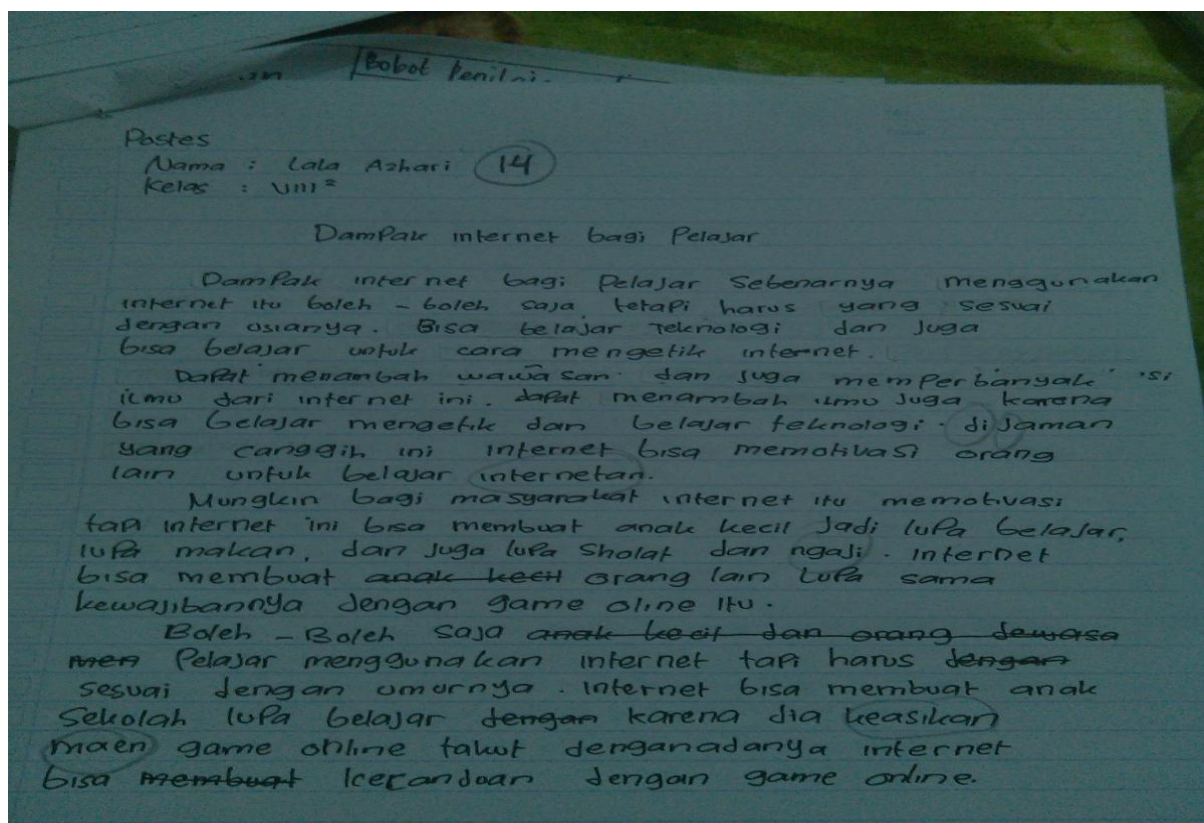 Bobot Penilai
Postes
Nama : Lala Azhari 14
Kelas : VIII²
Dampak internet bagi Pelajar
Dampak internet bagi Pelajar Sebenarnya menggunakan
internet itu boleh - boleh saja, tetapi harus yang sesuai
dengan usianya. Bisa belajar Teknologi dan Juga
bisa belajar untuk cara mengetik internet.
Dapat menambah wawasan dan juga memperbanyak isi
ilmu dari internet ini. dapat menambah ilmu Juga karena
bisa belajar mengetik dan belajar teknologi. di Jaman
yang canggih ini internet bisa memotivasi orang
lain untuk belajar internetan.
Mungkin bagi masyarakat internet itu memotivasi
tapi internet ini bisa membuat anak kecil Jadi lupa belajar,
lupa makan, dan Juga lupa Sholat dan ngaji. Internet
bisa membuat anak kecil orang lain Lupa sama
kewajibannya dengan game oline Itu.
Boleh - Boleh saja anak kecil dan orang dewasa
men Pelajar menggunakan internet tapi harus dengan
sesuai dengan umurnya. Internet bisa membuat anak
Sekolah lupa belajar dengan karena dia keasikan
maen game online takut denganadanya internet
bisa membuat kecanduan dengan game online.